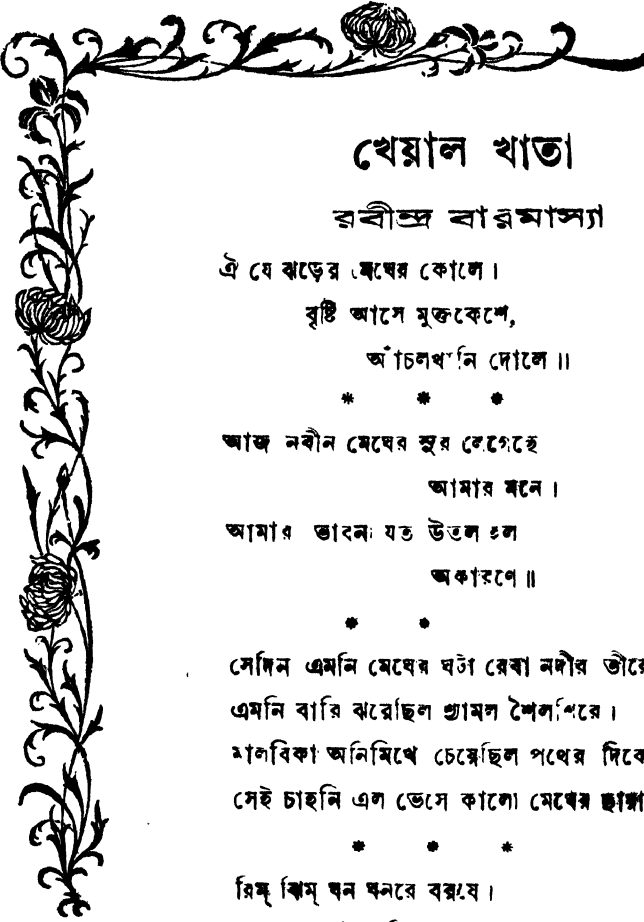 খেয়াল খাতা
রবীন্দ্র বারমাস্যা
ঐ যে ঝড়ের মেঘের কোলে।
বৃষ্টি আসে মুক্তকেশে,
আঁচলখানি দোলে॥
* * *
আজ নবীন মেঘের সুর লেগেছে
আমার মনে।
আমার ভাবনা যত উতল হল
অকারণে॥
* *
সেদিন এমনি মেঘের ঘটা রেবা নদীর তীরে
এমনি বারি ঝরেছিল শ্যামল শৈলশিরে।
মালবিকা অনিমিখে চেয়েছিল পথের দিকে
সেই চাহনি এল ভেসে কালো মেঘের ছায়া
* * *
রিম্ ঝিম্ ঘন ঘনরে বরষে।